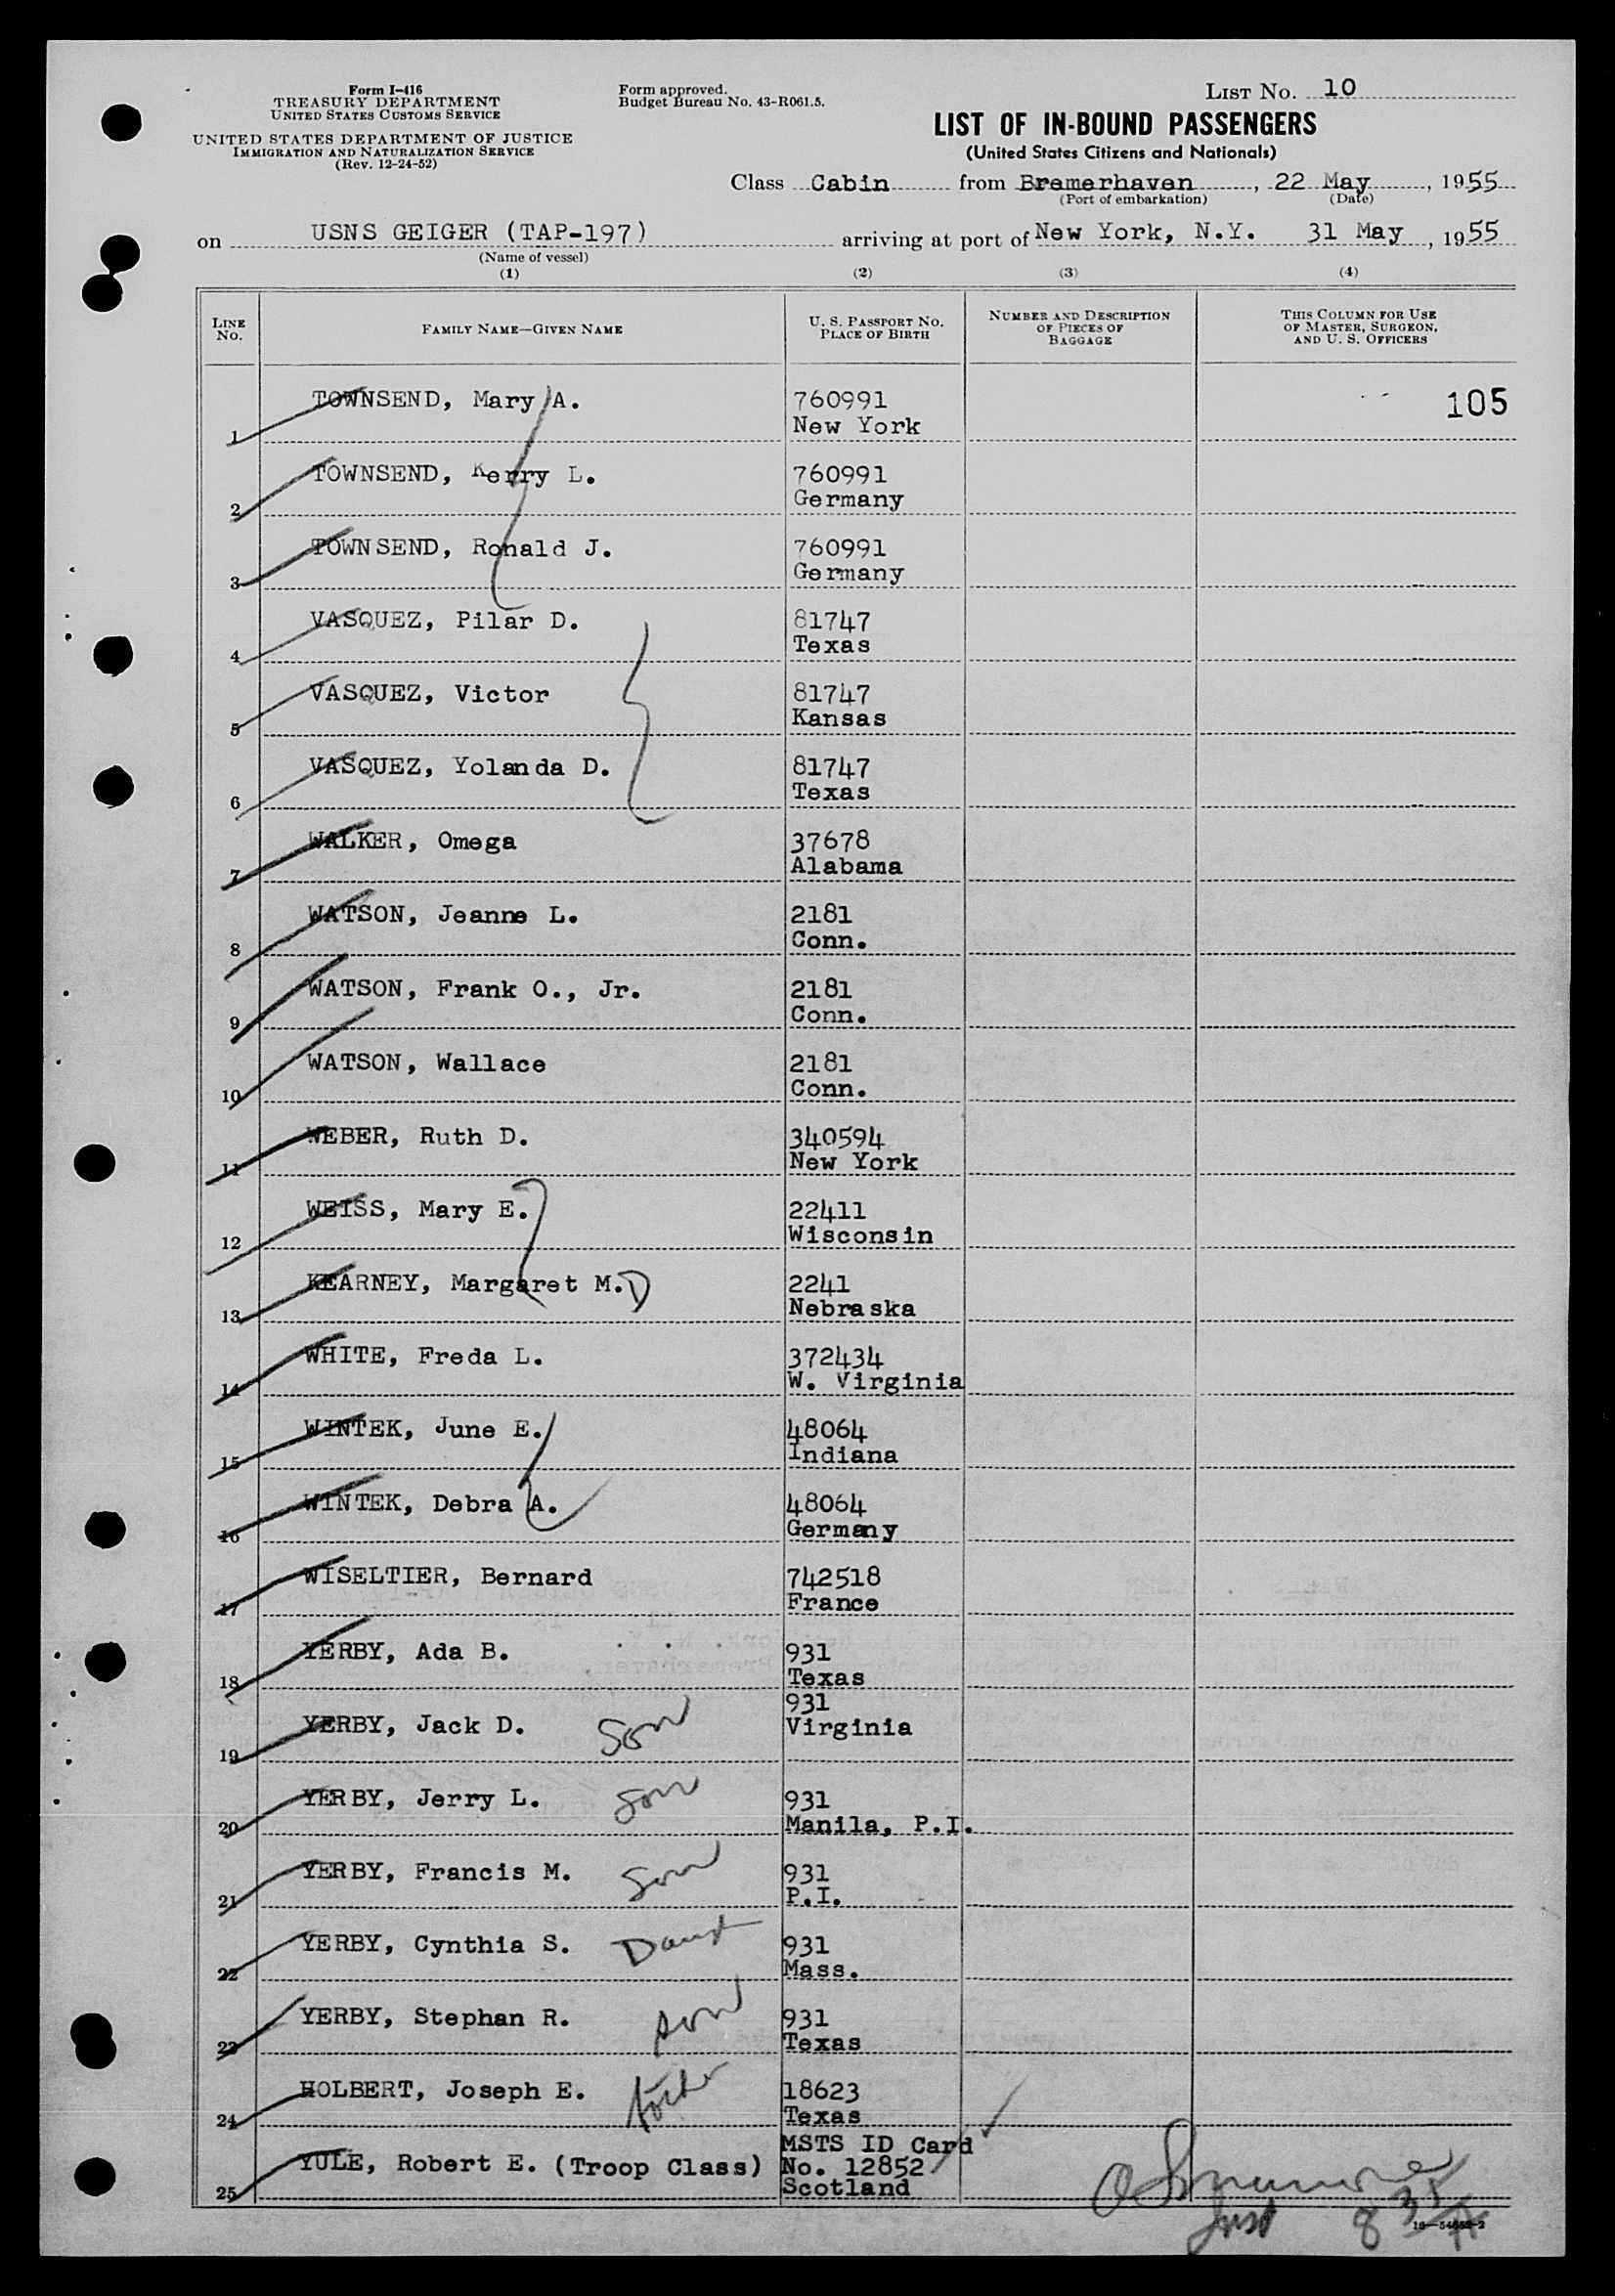 Form I-416
TREASURY DEPARTMENT
UNITED STATES CUSTOMS SERVICE
UNITED STATES DEPARTMENT OF JUSTICE
IMMIGRATION AND NATURALIZATION SERVICE
(Rev. 12-24-52)
Form approved.
Budget Bureau No. 43-R061.5.
LIST No. 10
LIST OF IN-BOUND PASSENGERS
(United States Citizens and Nationals)
Class Cabin from Bremerhaven, 22 May, 1955
(Port of embarkation) (Date)
on USNS GEIGER (TAP-197) arriving at port of New York, N.Y. 31 May, 1955
(Name of vessel)
(1) (2) (3) (4)
LINE No. FAMILY NAME—GIVEN NAME U. S. PASSPORT No. PLACE OF BIRTH NUMBER AND DESCRIPTION OF PIECES OF BAGGAGE THIS COLUMN FOR USE OF MASTER, SURGEON, AND U. S. OFFICERS
TOWNSEND, Mary A. 760991 105
1 New York
TOWNSEND, Kerry L. 760991
2 Germany
TOWNSEND, Ronald J. 760991
3 Germany
VASQUEZ, Pilar D. 81747
4 Texas
VASQUEZ, Victor 81747
5 Kansas
VASQUEZ, Yolanda D. 81747
6 Texas
WALKER, Omega 37678
7 Alabama
WATSON, Jeanne L. 2181
8 Conn.
WATSON, Frank O., Jr. 2181
9 Conn.
WATSON, Wallace 2181
10 Conn.
WEBER, Ruth D. 340594
11 New York
WEISS, Mary E. 22411
12 Wisconsin
KEARNEY, Margaret M. D 2241
13 Nebraska
WHITE, Freda L. 372434
14 W. Virginia
WINTEK, June E. 48064
15 Indiana
WINTEK, Debra A. 48064
16 Germany
WISELTIER, Bernard 742518
17 France
YERBY, Ada B. 931
18 Texas
931
YERBY, Jack D. Son Virginia
19
YERBY, Jerry L. Son 931
20 Manila, P.I.
YERBY, Francis M. Son 931
21 P.I.
YERBY, Cynthia S. Daugt 931
22 Mass.
YERBY, Stephan R. son 931
23 Texas
HOLBERT, Joseph E. father 18623
24 Texas
MSTS ID Card
YULE, Robert E. (Troop Class) No. 12852
25 Scotland
Insp
16—54652-2